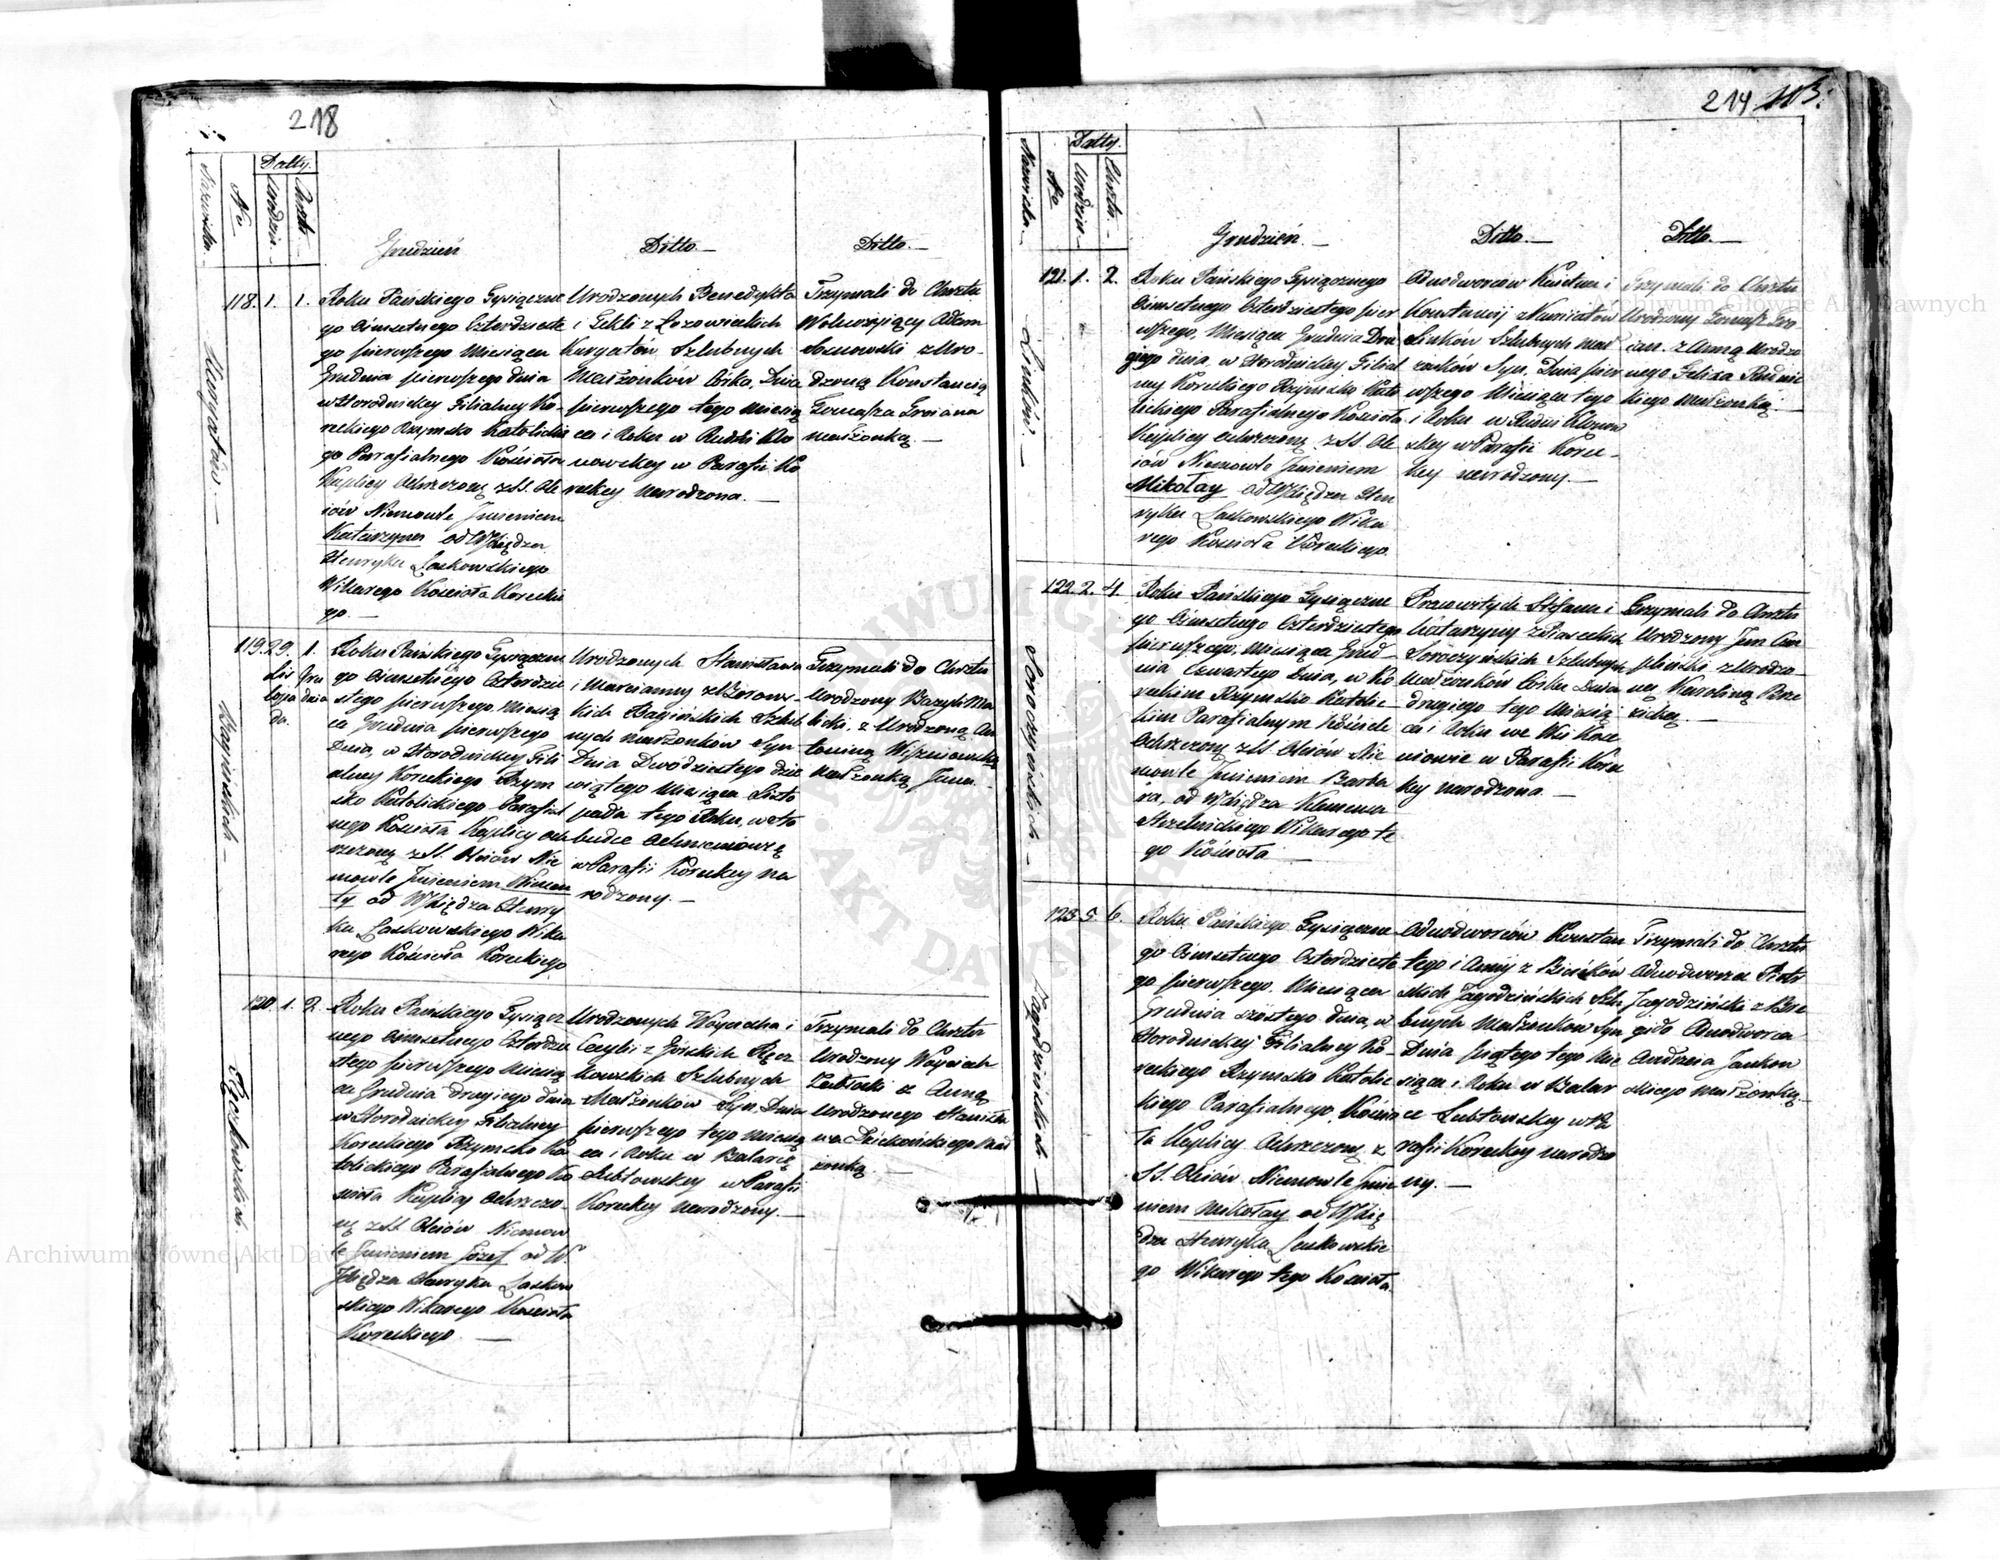 218
Datty.
Nazwiska
No
Urodzin
Chrztu
Grudzień
Ditto.
Ditto.
Kurgatów.
118. 1. 1.
Roku Pańskiego Tysiączne
go Ośmsetnego Czterdzieste
go pierwszego Miesiąca
Grudnia pierwszego dnia
w Horodnickiey Filialney Ko-
reckiego Rzymsko Katolickie
go Parafialnego Kościoła
Kaplicy Ochrzczony z SS. Ole
iów Niemowle Jmieniem
Katarzyna od W Xiędza
Henryka Laskowskiego
Wikarego Kościoła Koreckie
go.
Urodzonych Benedykta
i Tekli z Łozowickich
Kurgatów Szlubnych
Małżonków Córka, Dnia
pierwszego tego Miesią
ca i Roku w Rudni Kło
nowskey w Parafii Ko
reckey narodzona.
Trzymali do Chrztu
Adam
z Uro-
dzoną Konstancią
Tomasza Groiana
małżonką.
Bagińskich
119. 29. 1.
Lis
topa
da.
Gru
dnia
Roku Pańskiego Tysiączne
go Ośmsetnego Czterdzie
stego pierwszego Miesią
ca Grudnia pierwszego
Dnia, w Horodnickiey Fili
alney Koreckiego Rzym
sko Katolickiego Parafial
nego Kościoła Kaplicy Och
rzczony z SS. Oleiów Nie
mowle Jmieniem
ty od W Xiędza Henry
ka Laskowskiego Wika
rego Kościoła Koreckiego
Urodzonych Stanisława
i Maryanny
kich Bagińskich Szlub
nych małżonków Syn
Dnia Dwudziestego dzie
wiątego Miesiąca Listo
pada tego Roku, w
w Parafii Koreckey na
rodzony.
Trzymali do Chrztu
Urodzony Bazyli Ma
licki, z Urodzoną An
toniną Wiszniowską
Małżonką Jana.
120. 1. 2.
Roku Pańskiego Tysiącz
nego Ośmsetnego Czterdzie
stego pierwszego Miesią
ca Grudnia drugiego dnia
w Horodnickiey Filialney
Koreckiego Rzymsko Ka
tolickiego Parafialnego Ko
ścioła Kaplicy Ochrzczo-
ny z SS. Oleiów Niemow
le Jmieniem Józef od W.
Xiędza Henryka Laskow
skiego Wikarego Kościoła
Koreckiego.
Urodzonych Woyciecha i
Cecylii z Górskich
kowskich Szlubnych
Małżonków Syn. Dnia
pierwszego tego Miesią
ca i Roku w
w Parafii
Koreckey narodzony.
Trzymali do Chrztu
Urodzony Woyciech
z Anną
Urodzonego Stanisła
wa Małż
żonką
214 113.
Datty.
Nazwiska
No
Urodzin
Chrztu
Grudzień.
Ditto.
Ditto.
Linków.
121. 1. 2.
Roku Pańskiego Tysiącznego
Ośmsetnego Czterdziestego pier
wszego, Miesiąca Grudnia Dru
giego dnia, w Horodnickiey Filial
ney Koreckiego Rzymsko Kato
lickiego Parafialnego Kościoła
Kaplicy Ochrzczony z SS. Ole
iów Niemowle Jmieniem
Mikołay od W Xiędza Hen
ryka Laskowskiego Wika
rego Kościoła Koreckiego
Odnodworców Justina i
Konstancij z Kuniatów
Linków Szlubnych Mał
żonków Syn, Dnia pier
wszego Miesiąca tego
i Roku w Rudni Kłonow
skey w Parafii Korec-
key narodzony.
Trzymali do Chrztu
Urodzony Tomasz Gro
ian. z Anną Urodzo
nego Felixa Rudnic
kiego Małżonką.
Soroczyńskich
122. 2. 4.
Roku Pańskiego Tysiączne
go Ośmsetnego Czterdziestego
pierwszego. Miesiąca Grud-
nia Czwartego Dnia, w Ko
reckim Rzymsko Katolic-
kim Parafialnym Kościele
Ochrzczony z SS. Oleiów Nie
mowle Jmieniem Barba
ra, od W Xiędza Klemensa
Strzelnickiego Wikarego te
go Kościoła
Pracowitych Stefana i
Katarzyny z Piaseckich
Soroczyńskich Szlubnych
małżonków Córka Dnia
drugiego tego Miesią
ca i Roku we Wsi
w Parafii Korec
key narodzona.
Trzymali do Chrztu
Urodzony Jan
z Urodzo
ną Karoliną
Jagodzińskich
123. 5. 6.
Roku Pańskiego Tysiączne
go Ośmsetnego Czterdzieste
go pierwszego. Miesiąca
Grudnia szóstego dnia, w
Horodnickiey Filialney Ko-
reckiego Rzymsko Katolic
kiego Parafialnego, Kościo
ła Kaplicy Ochrzczony z
SS. Oleiów Niemowle Jmie
niem Mikołay od W Xię
dza Henryka Laskowskie
go Wikarego tego Kościoła.
Odnodworców Konstan
tego i Anny z
skich Jagodzińskich Szlu
bnych Małżonków Syn
Dnia piątego tego Mie
siąca i Roku w
w Pa
rafii Koreckey narodzo
ny.
Trzymali do Chrztu
Odnodworzec Piotr
Jagodziński z
Odnodworca
Andrzeia Jankow
skiego małżonką.
Archiwum Główne Akt Dawnych
Archiwum Główne Akt Dawnych